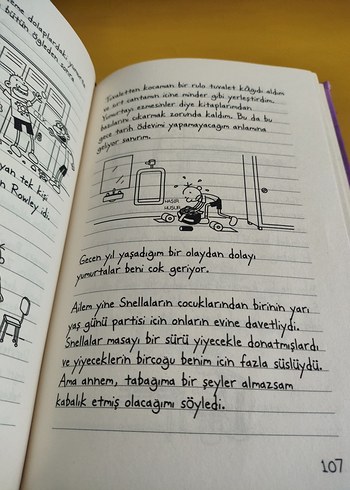 eme dolaplardaki yumurta
bütün öğleden sonra
yan tek kişi
n Rowley idi.
Tuvaletten kocaman bir rulo tuvalet kâğıdı aldım
ve sırt çantamın içine minder gibi yerleştirdim.
Yumurtayı ezmesinler diye kitaplarımdan
bazılarını çıkarmak zorunda kaldım. Bu da bu
gece tarih ödevimi yapamayacağım anlamına
geliyor sanırım.
HAŞIR
HUŞUR
Geçen yıl yaşadığım bir olaydan dolayı
yumurtalar beni çok geriyor.
Ailem yine Snellaların çocuklarından birinin yarı
yaş günü partisi için onların evine davetliydi.
Snellalar masayı bir sürü yiyecekle donatmışlardı
ve yiyeceklerin birçoğu benim için fazla süslüydü.
Ama annem, tabağıma bir şeyler almazsam
kabalık etmiş olacağımı söyledi.
107